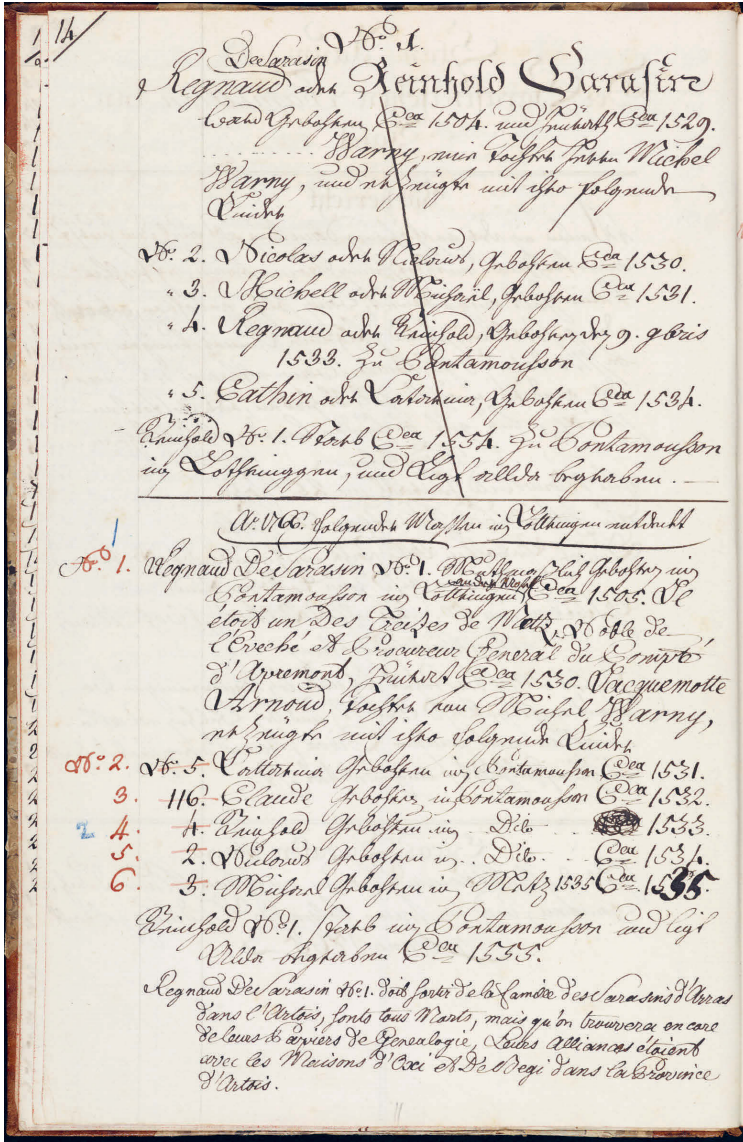 14
No. 1.
DeSarasin
Regnaud oder Reinhold Sarasin
ward Gebohren Cca 1504. und heurath Cca 1529.
Warny, eine Tochter Herrn Michel
Warny, und erzeugte mit ihro folgende
Kinder
No. 2. Nicolas oder Niclaus, Gebohren Cca 1530.
" 3. Michell oder Michael, Gebohren Cca 1531.
" 4. Regnaud oder Reinhold, Gebohren den 9. 9bris
1533. zu Pontamousson
" 5. Cathin oder Catarina, Gebohren Cca 1534.
Reinhold No. 1. Starb Cca 1554. zu Pontamousson
in Lothringgen, und Ligt allda begraben.
folgender Massen in Lottringen entdeckt
1
No. 1. Regnaud DeSarasin No. 1. Gebohren in
Pontamousson in Lottringen Cca 1505. Il
étoit un Des Treizes de Metz, Noble de
l'Eveché et Procureur General du Compté
d'Apremont, heurat Cca 1530. Jacquemotte
Arnoud, Tochter von Michel Warny,
erzeugte mit ihro folgende Kinder
No. 2. No. 5. Cattarina Gebohren in Pontamousson Cca 1531.
3. 116. Claude Gebohren in Pontamousson Cca 1532.
2 4. 4. Reinhold Gebohren in Dito 1533.
5. 2. Niclaus Gebohren in Dito Cca 1534.
6. 3. Michael Gebohren in Metz 1535 Cca 1535.
Reinhold No. 1. starb in Pontamousson und ligt
Allda begraben Cca 1555.
Regnaud DeSarasin No. 1. doit sortir de la Famille des Sarasins d'Arras
dans l'Artois, sonts tous Morts, mais qu'on trouvera encore
de leurs Papiers de Genealogie, Leurs Alliances étoient
avec les Maisons d'Oxi et De Begi dans la Province
d'Artois.